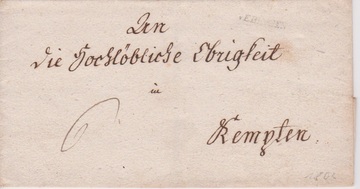 An
die Hochlöbliche Obrigkeit
in
Kempten.
6